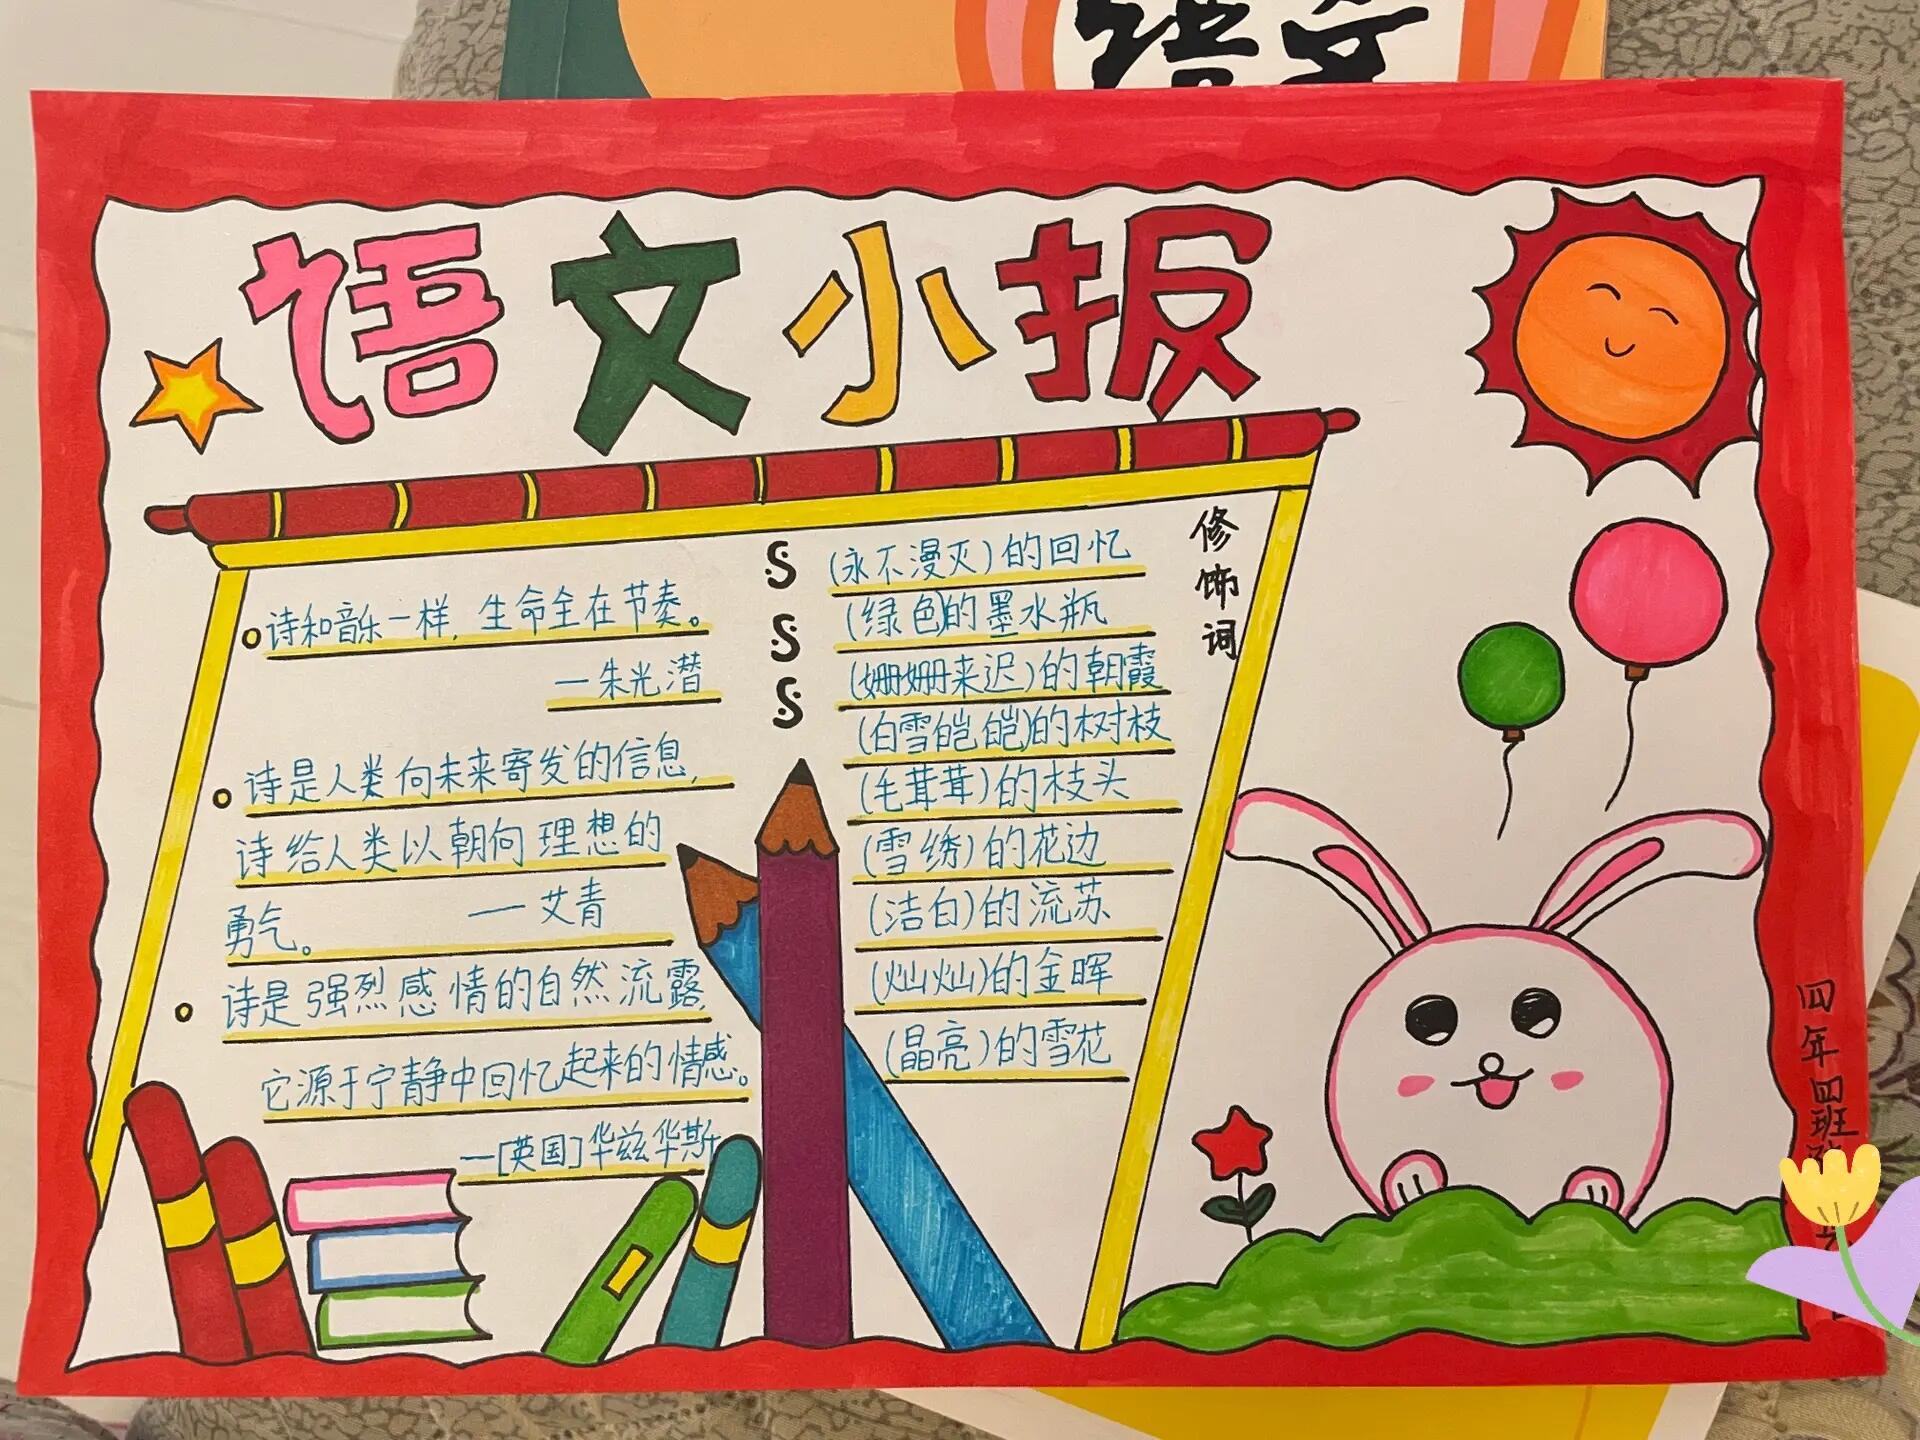 语文
语文小报
诗和音乐一样，生命全在节奏。
一朱光潜
诗是人类向未来寄发的信息，
诗给人类以朝向理想的
勇气。 一艾青
诗是强烈感情的自然流露，
它源于宁静中回忆起来的情感。
一[英国]华兹华斯
S
S
S
修饰词
(永不漫灭)的回忆
(绿色)的墨水瓶
(姗姗来迟)的朝霞
(白雪皑皑)的树枝
(毛茸茸)的枝头
(雪绣)的花边
(洁白)的流苏
(灿灿)的金晖
(晶亮)的雪花
四年四班